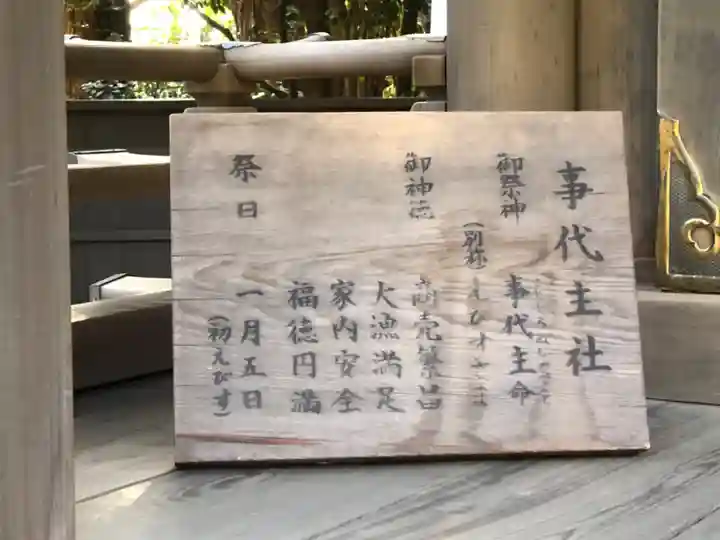 事代主社
御祭神 事代主命
(別称) えびすさま
御神徳 商売繁昌
大漁満足
家内安全
福徳円満
祭日 一月五日
(初えびす)